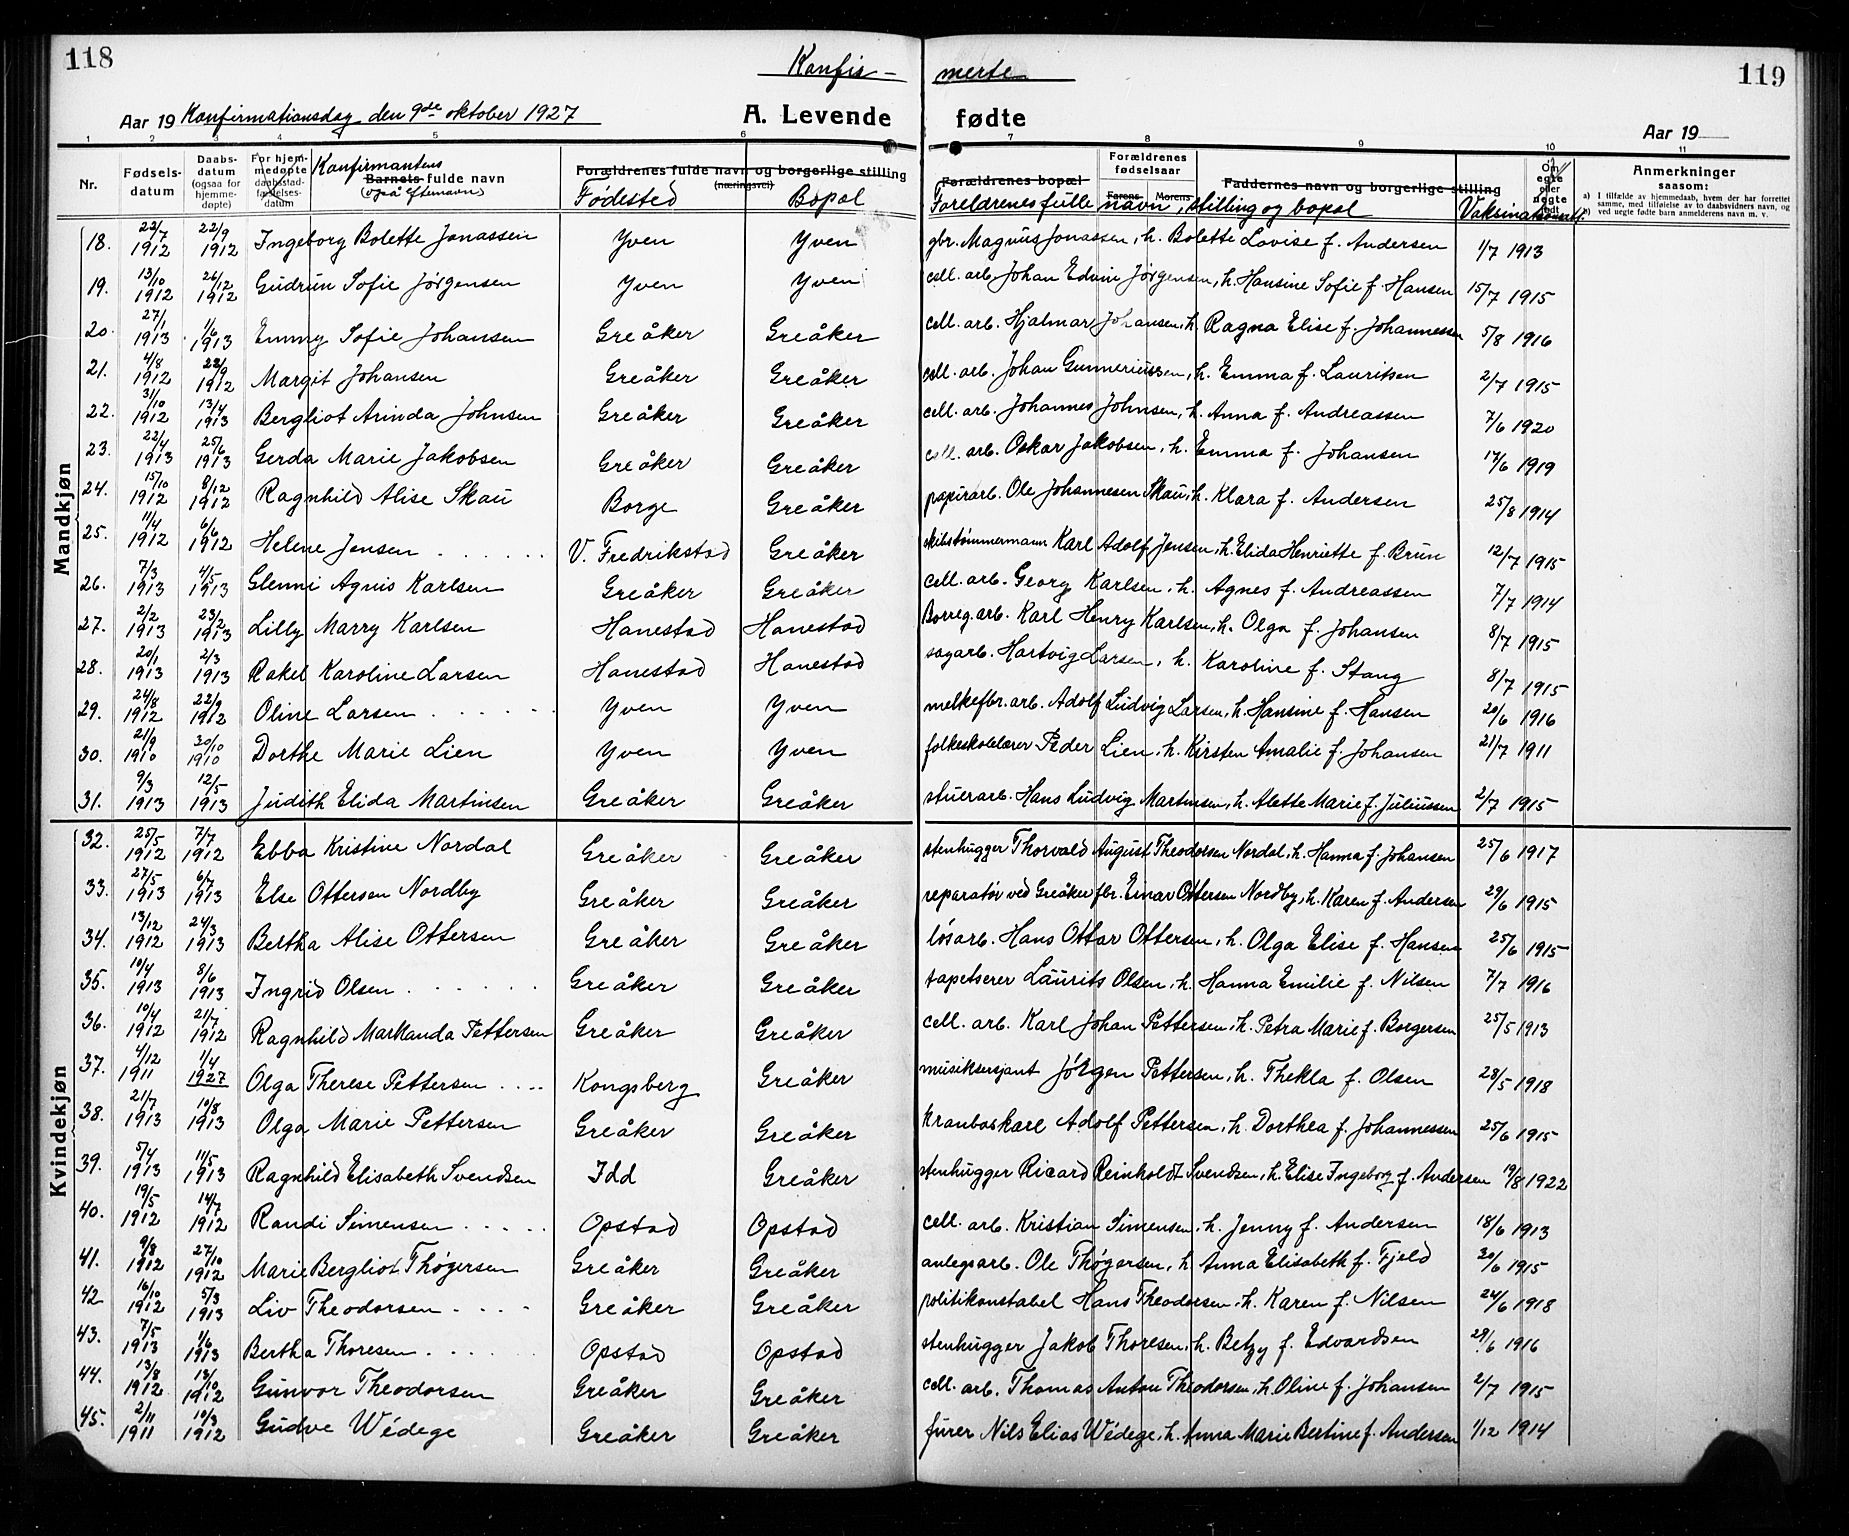 118 Konfis- merte 119
Aar 19 Konfirmationsdag den 9de oktober 1927 A. Levende fødte Aar 19
1 2 3 4 5 6 7 8 9 10 11
Nr. Fødselsdatum Daabsdatum (ogsaa for hjemmedøpte) For hjemmedøpte daabsstadfæstelsesdatum Konfirmantens Barnets fulde navn (også efternavn) Forældrenes fulde navn og borgerlige stilling (næringsvei) Fødested Bopæl Forældrenes bopæl Forældrenes fødselsaar Farens Morens Faddernes navn og borgerlige stilling Foreldrenes fulle navn, stilling og bopæl Om egte eller uegte født Vaksinationsatt. Anmerkninger saasom:
a) I tilfælde av hjemmedaab, hvem der har forrettet samme, med tilføielse av to daabsvidners navn, og
b) ved uegte fødte barn anmelderens navn m. v.
Mandkjøn
18. 22/7 1912 22/9 1912 Ingeborg Bolette Jonassen Yven Yven gbr. Magnus Jonassen, h. Bolette Lovise f. Andersen 1/7 1913
19. 13/10 1912 26/12 1912 Gudrun Sofie Jørgensen Yven Yven cell. arb. Johan Edvin Jørgensen, h. Hansine Sofie f. Hansen 15/7 1915
20. 27/1 1913 1/6 1913 Emmy Sofie Johansen Greåker Greåker cell. arb. Hjalmar Johansen, h. Ragna Elise f. Johannessen 5/8 1916
21. 4/8 1912 22/9 1912 Margit Johansen Greåker Greåker cell. arb. Johan Gunneriussen, h. Emma f. Lauritsen 2/7 1915
22. 31/10 1912 13/4 1913 Bergliot Arinda Johnsen Greåker Greåker cell. arb. Johannes Johnsen, h. Anna f. Andreassen 7/6 1920
23. 22/4 1913 25/6 1913 Gerda Marie Jakobsen Greåker Greåker cell. arb. Oskar Jakobsen, h. Emma f. Johansen 17/6 1919
24. 15/10 1912 8/12 1912 Ragnhild Alise Skau Borge Greåker papirarb. Ole Johannesen Skau, h. Klara f. Andersen 25/8 1914
25. 11/4 1912 6/6 1912 Helene Jensen . . . . . . V. Fredrikstad Greåker skibstømmermann Karl Adolf Jensen, h. Elida Henriette f. Brun 12/7 1915
26. 7/3 1913 4/5 1913 Glenni Agnis Karlsen Greåker Greåker cell. arb. Georg Karlsen, h. Agnes f. Andreassen 7/7 1914
27. 2/2 1913 23/2 1913 Lilly Marry Karlsen Hanestad Hanestad Borreg. arb. Karl Henry Karlsen, h. Olga f. Johansen 8/7 1915
28. 20/1 1913 2/3 1913 Rakel Karoline Larsen Hanestad Hanestad sagarb. Hartvig Larsen, h. Karoline f. Stang 8/7 1915
29. 24/8 1912 22/9 1912 Oline Larsen . . . . . Yven Yven melkefbr. arb. Adolf Ludvig Larsen, h. Hansine f. Hansen 20/6 1916
30. 21/9 1910 30/10 1910 Dorthe Marie Lien Yven Yven folkeskolelærer Peder Lien, h. Kirsten Amalie f. Johansen 21/7 1911
31. 9/3 1913 12/5 1913 Judith Elida Martinsen Greåker Greåker stuerarb. Hans Ludvig Martinsen, h. Alette Marie f. Juliussen 2/7 1915
Kvindekjøn
32. 25/5 1912 7/7 1912 Ebba Kristine Nordal Greåker Greåker stenhugger Thorvald August Theodorsen Nordal, h. Hanna f. Johansen 25/6 1917
33. 27/5 1913 6/7 1913 Else Ottersen Nordby Greåker Greåker reparatør ved Greåker fbr. Einar Ottersen Nordby, h. Karen f. Andersen 29/6 1915
34. 13/12 1912 24/3 1913 Bertha Alise Ottersen Greåker Greåker løsarb. Hans Ottar Ottersen, h. Olga Elise f. Hansen 25/6 1915
35. 10/4 1913 8/6 1913 Ingrid Olsen . . . . . . Greåker Greåker tapetserer Laurits Olsen, h. Hanna Emilie f. Nilsen 7/7 1916
36. 10/4 1912 21/7 1912 Ragnhild Markanda Pettersen Greåker Greåker cell. arb. Karl Johan Pettersen, h. Petra Marie f. Borgersen 25/5 1913
37. 4/12 1911 1/4 1927 Olga Therese Pettersen . . . . Kongsberg Greåker musiksersjant Jørgen Pettersen, h. Thekla f. Olsen 28/5 1918
38. 21/7 1913 10/8 1913 Olga Marie Pettersen Greåker Greåker kranbaskare Adolf Pettersen, h. Dorthea f. Johannessen 25/6 1915
39. 5/4 1913 11/5 1913 Ragnhild Elisabeth Svendsen Idd Greåker stenhugger Ricard Reinholdt Svendsen, h. Elise Ingeborg f. Andersen 19/8 1922
40. 19/5 1912 14/7 1912 Randi Simensen . . . . . Opstad Opstad cell. arb. Kristian Simensen, h. Jenny f. Andersen 18/6 1913
41. 9/8 1912 27/10 1912 Marie Bergliot Thøgersen Greåker Greåker anlegsarb. Ole Thøgersen, h. Anna Elisabeth f. Fjeld 30/6 1915
42 16/10 1912 5/3 1913 Liv Theodorsen . . . . Greåker Greåker politikonstabel Hans Theodorsen, h. Karen f. Nilsen 24/6 1918
43. 7/5 1913 1/6 1913 Bertha Thoresen . . . . . . Opstad Opstad stenhugger Jakob Thoresen, h. Betzy f. Edvardsen 29/6 1916
44. 13/8 1912 13/10 1912 Gunvor Theodorsen Greåker Greåker cell. arb. Thomas Anton Theodorsen, h. Oline f. Johansen 2/7 1915
45. 2/11 1911 10/3 1912 Gudve Wédege Greåker Greåker furer Nils Elias Wédege, h. Anna Marie Bertine f. Andersen 1/12 1914